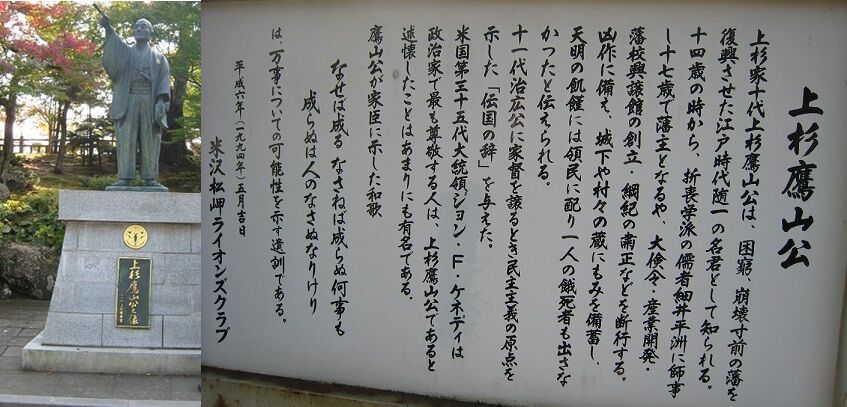 上杉鷹山公之像
上杉鷹山公
上杉家十代上杉鷹山公は、困窮、崩壊寸前の藩を
復興させた江戸時代随一の名君として知られる。
十四歳の時から、折衷学派の儒者細井平洲に師事
し十七歳で藩主となるや、大倹令・産業開発・
藩校興譲館の創立・綱紀の粛正などを断行する。
凶作に備え、城下や村々の蔵にもみを備蓄し、
天明の飢饉には領民に配り一人の餓死者も出さな
かったと伝えられる。
十一代治広公に家督を譲るとき民主主義の原点を
示した「伝国の辞」を与えた。
米国第三十五代大統領ジョン・F・ケネディは
政治家で最も尊敬する人は、上杉鷹山公であると
述懐したことはあまりにも有名である。
鷹山公が家臣に示した和歌
なせば成る なさねば成らぬ何事も
成らぬは人のなさぬなりけり
は、万事についての可能性を示す遺訓である。
平成六年(一九九四年)五月吉日
米沢松岬ライオンズクラブ